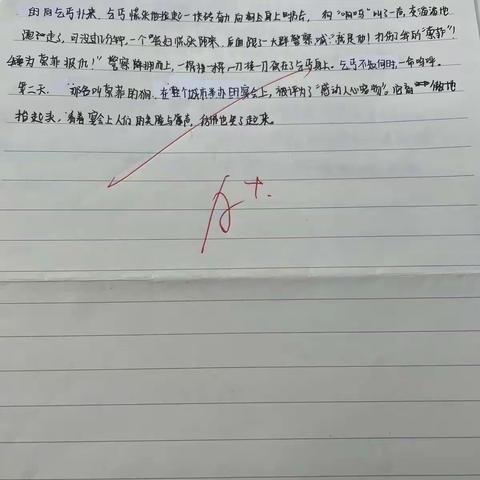 的向乞丐扑来，乞丐慌张地捡起一块砖奋力向狗身上砸去，狗“嗷呜”叫了一声，灰溜溜地
跑走了，可没过几分钟，一个贵妇慌张跑来，后面跟了一大群警察喊：就是他！打伤了我的“索菲”！
“快为索菲报仇！”警察蜂拥而上，一棒接一棒，一刀接一刀砍在了乞丐身上。乞丐不知何时，一命呜呼。
第二天，那名叫索菲的狗，在整个城市举办的宴会上，被评为了“感动人心宠物”。它骄傲地
抬起头，看着宴会上人们的笑脸与掌声，仿佛也笑了起来。
A+.